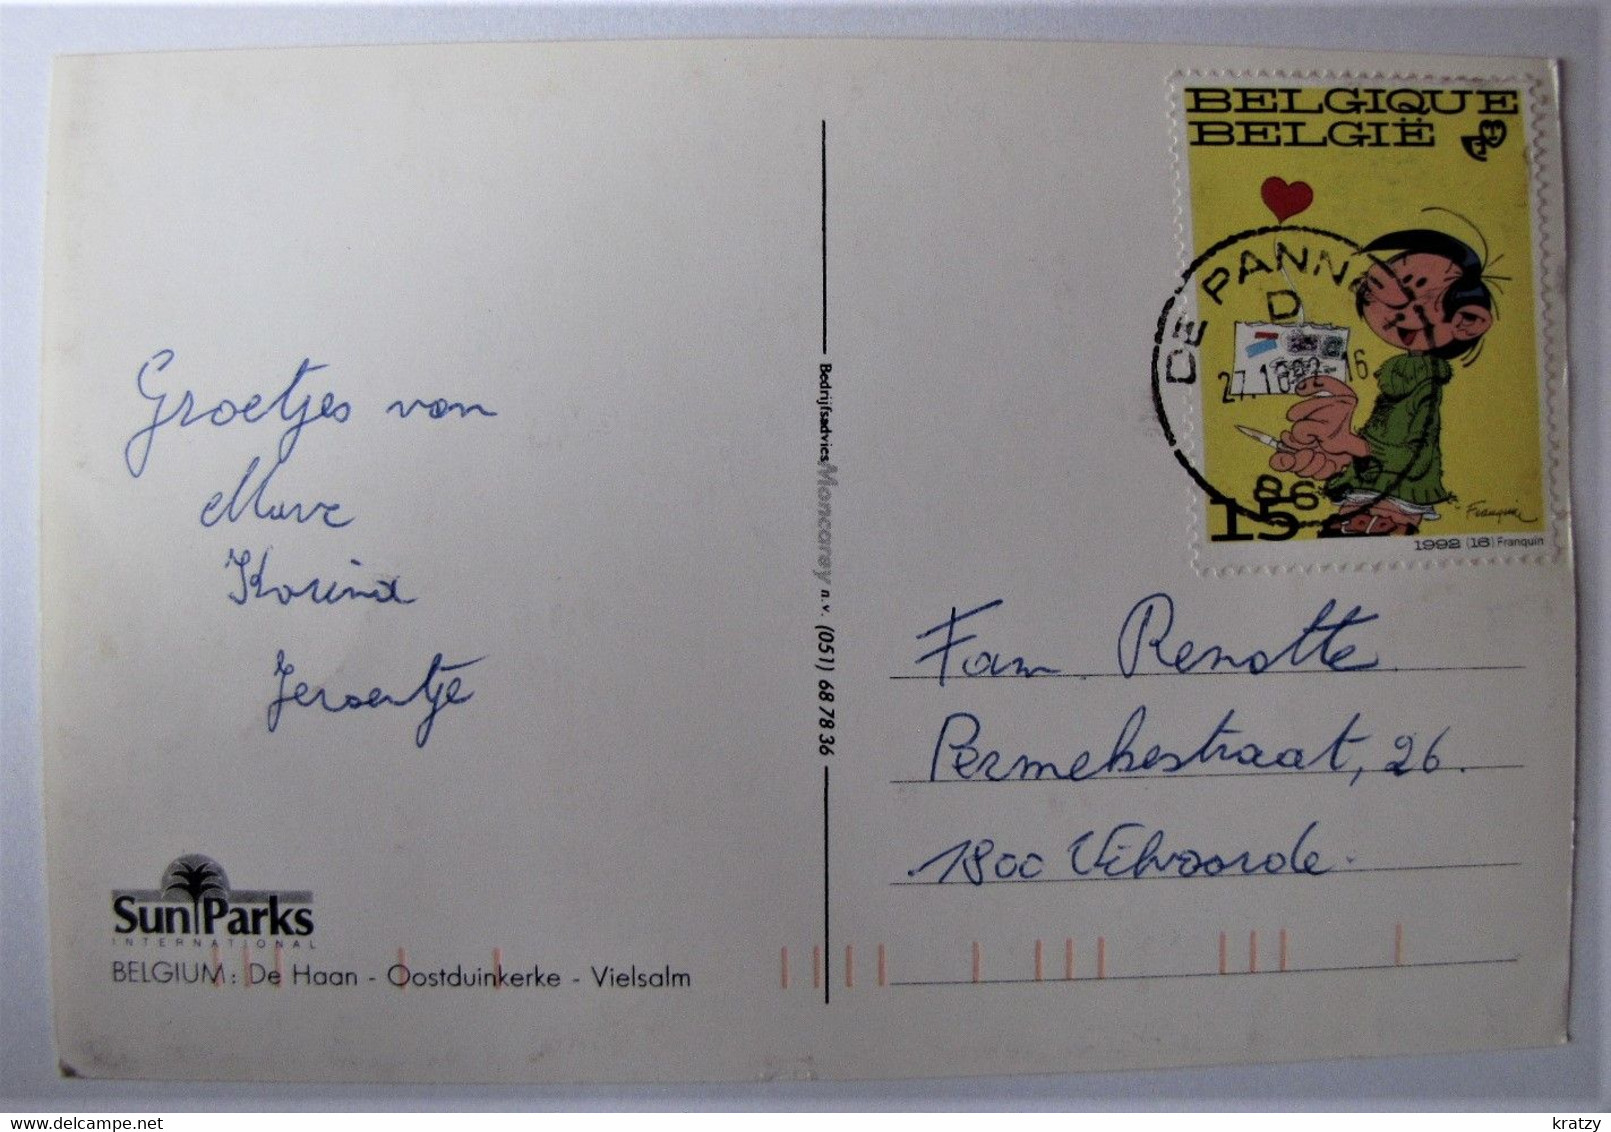 Groetjes van
Marc
Korina
Jeroentje
Sun Parks
INTERNATIONAL
BELGIUM: De Haan - Oostduinkerke - Vielsalm
Bedrijfsadvies Moncarey n.v. (051) 68 78 36
BELGIQUE
BELGIË
DE PANNE
D
27.10.92 16
15
Franquin
1992 (16) Franquin
Fam Renotte
Permekestraat, 26.
1800 Vilvoorde.
www.delcampe.net
kratzy